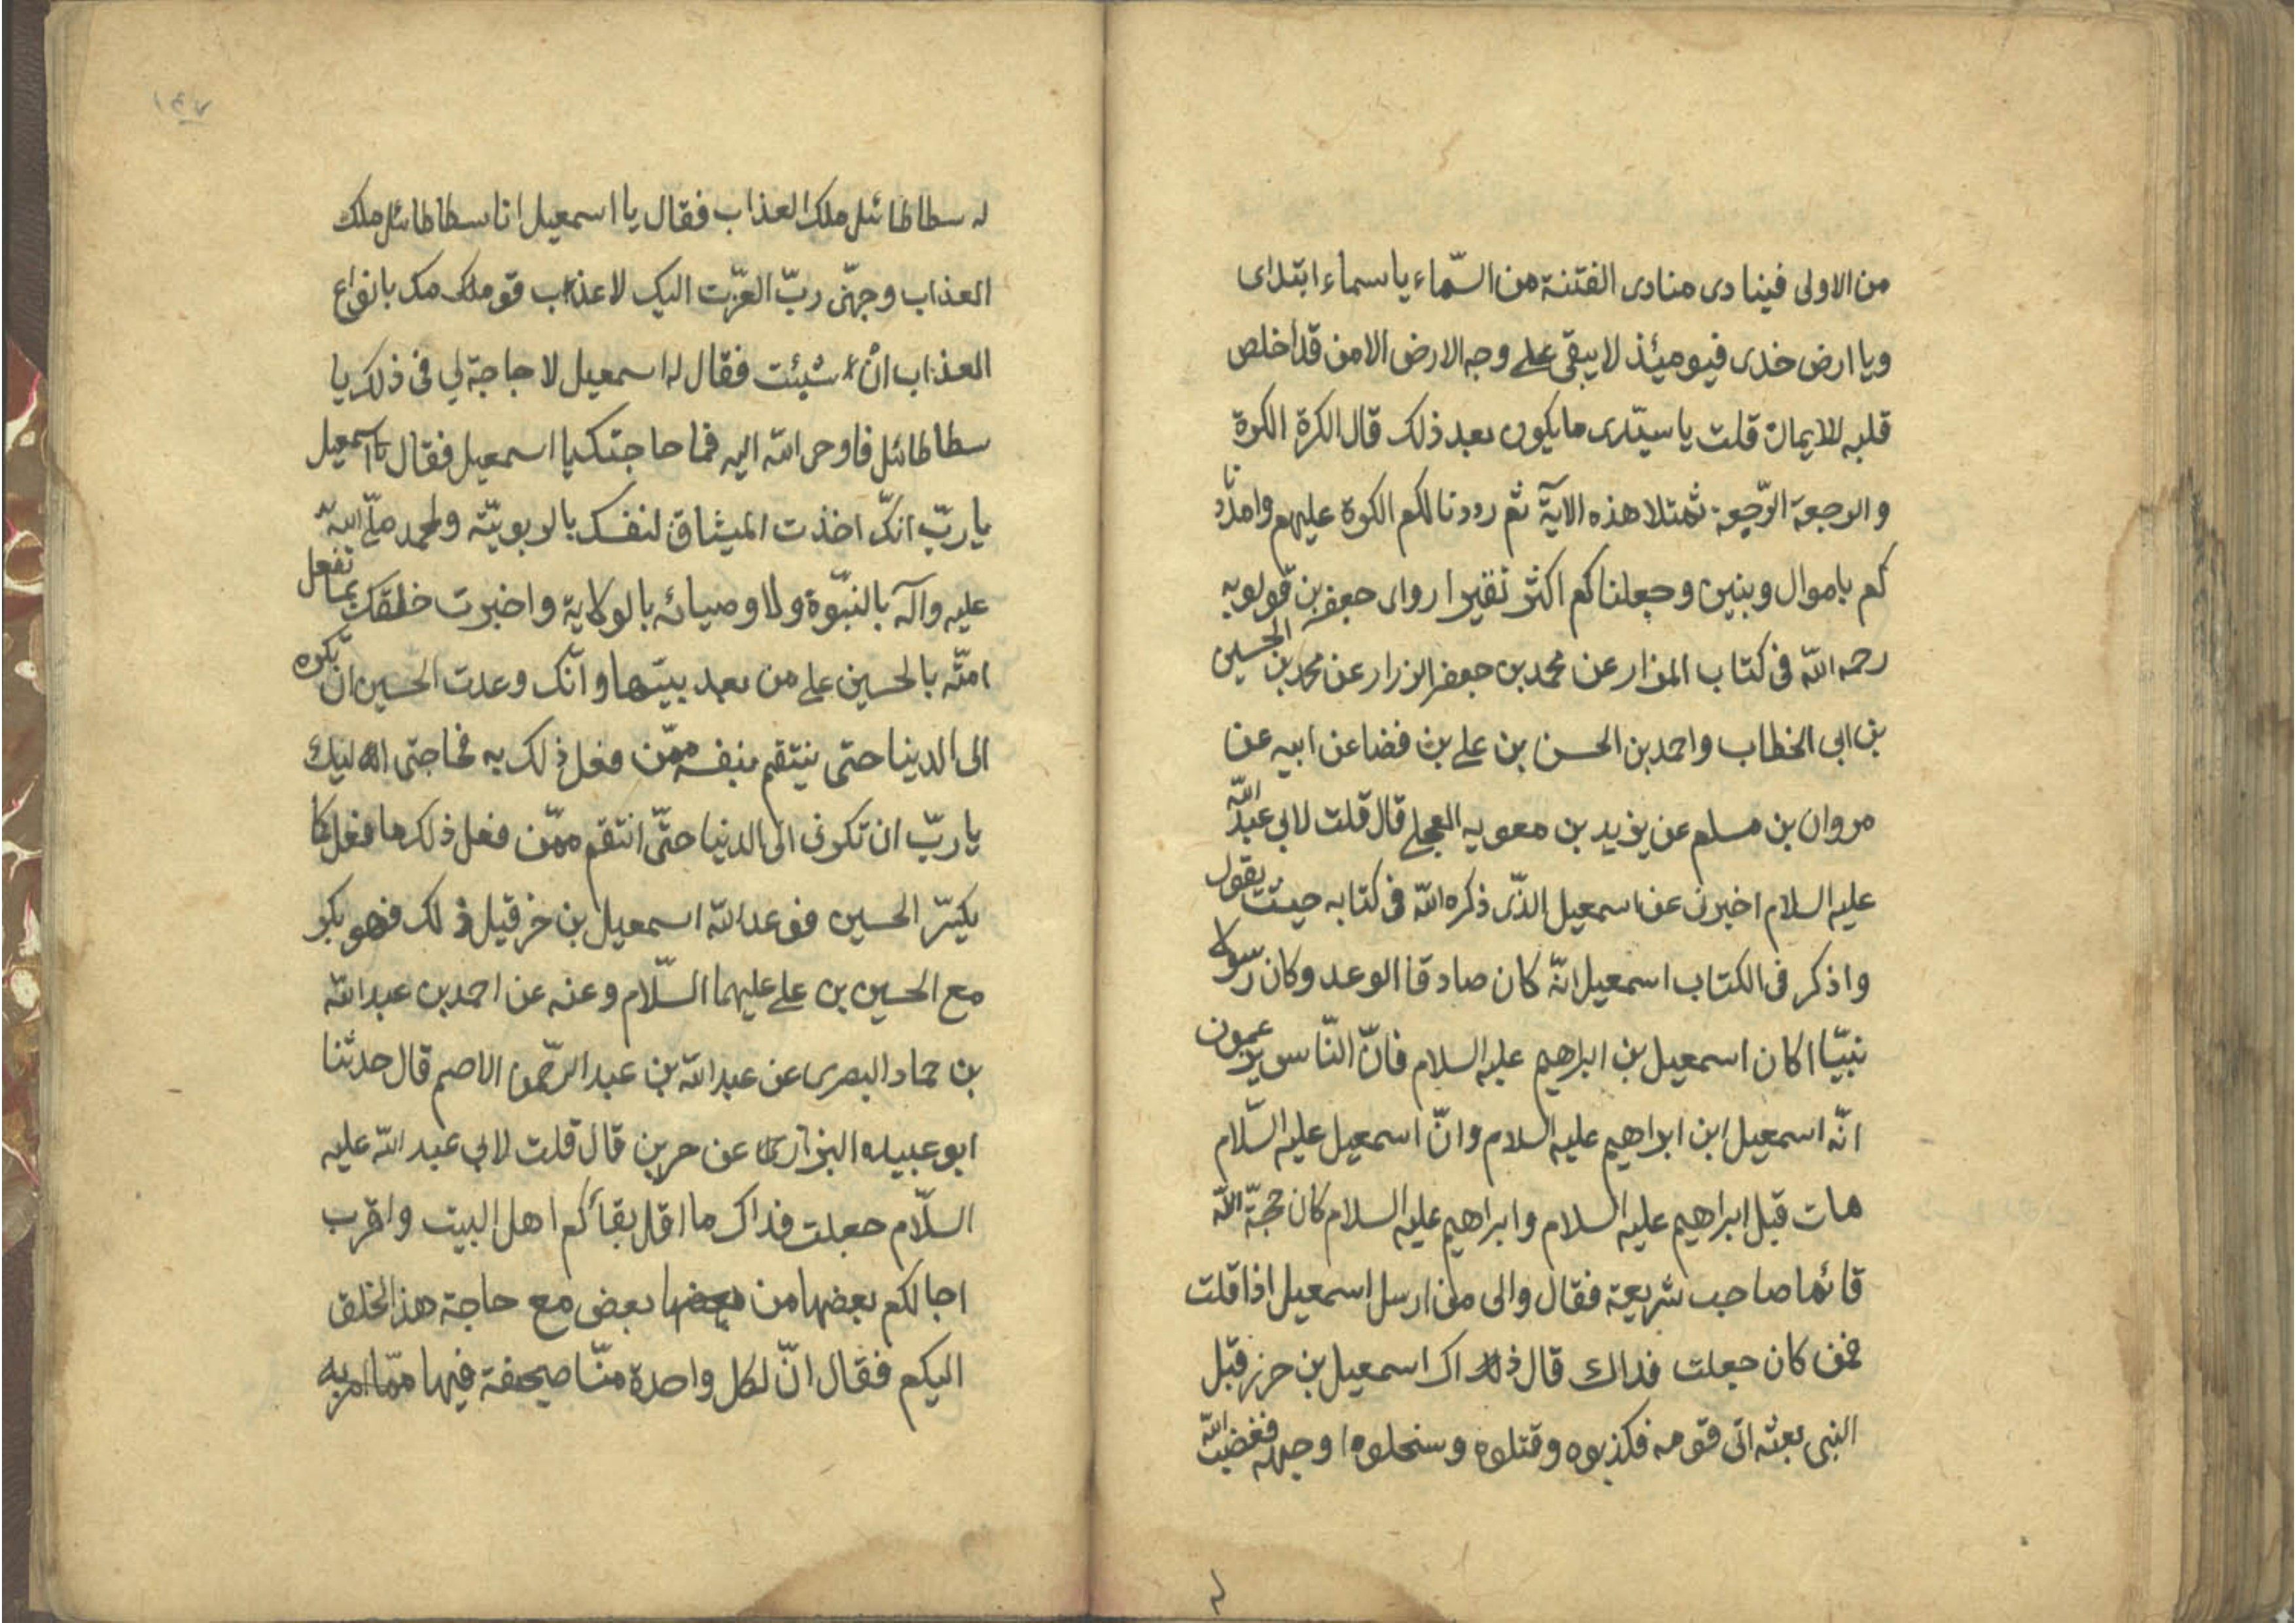 من الاولى فينادى منادى الفتنة من السّماء يا سماء ابتدای
ويا ارض خدى فيومئذ لا يبقى على وجه الارض الا من قد أخلص
قلبه للايمان قلت يا سيّدى ما يكون بعد ذلك قال الكرة الكرة
والرجعة الرّجعة ثم تلا هذه الآية ثم رددنا لكم الكرة عليهم وامددنا
كم باموال وبنين وجعلناكم اكثر نفيرا روای جعفر بن قولويه
رحمه اللّه فى كتاب المزار عن محمد بن جعفر الزرار عن محمد بن الحسين
بن ابى الخطاب واحمد بن الحسن بن على بن فضا عن ابيه عن
مروان بن مسلم عن يزيد بن معويه العجلى قال قلت لابى عبد اللّه
عليه السلام اخبرنى عن اسمعيل الذّى ذكره اللّه فى كتابه حيث يقول
واذكر فى الكتاب اسمعيل انّه كان صادقا الوعد وكان رسولا
نبيّا اكان اسمعيل بن ابراهيم عليه السلام فانّ النّاس يزعمون
انّه اسمعيل ابن ابراهيم عليه السلام وانّ اسمعيل عليه السّلام
مات قبل ابراهيم عليه السلام وابراهيم عليه السلام كان حجّة اللّه
قائما صاحب شريعة فقال والى من ارسل اسمعيل اذا قلت
فمن كان جعلت فداك قال ذاك اسمعيل بن حزقيل
النبى بعثه اتى قومه فكذبوه وقتلوه وسنحلوه ا وجهه فغضب اللّه
له سطاطائيل ملك العذاب فقال يا اسمعيل انا سطاطائيل ملك
العذاب وجهنّى ربّ العزّت اليك لاعذب قومك بانواع
العذاب انْ شيئت فقال له اسمعيل لا حاجة لي فى ذلك يا
سطاطائيل فاوحى اللّه اليه فما حاجتك يا اسمعيل فقال اسمعيل
يا ربّ انكّ اخذت الميثاق لنفسك بالربوبيّة ولمحمد صلّى اللّه
عليه وآله بالنبّوة ولاوصيائه بالولاية واخبرت خلقك بما تفعل
امتّه بالحسين على من بعد نبيّها وانّك وعدت الحسين ان تكره
الى الدينا حتى ينتقم بنفسه ممّن فعل ذلك به فحاجتى اليك
يا ربّ ان تكرنى الى الدنيا حتّى انتقم ممّن فعل ذلك ما فعل كا
يكيرّ الحسين فوعد اللّه اسمعيل بن خزقيل ذلك فهو يكر
مع الحسين بن على عليهما السّلام وعنه عن احمد بن عبد اللّه
بن حماد البصرى عن عبد اللّه بن عبد الرحّمن الاصم قال حدثنا
ابو عبيده البزاری عن حريز قال قلت لابى عبد اللّه عليه
السلّام جعلت فداك ما اقل بقاأكم اهل البيت واقرب
اجالكم بعضها من بعض مع حاجة هذ الخلق
اليكم فقال انّ لكل واحدة منّا صيحفة فيها ممّا امر به
١٤٧